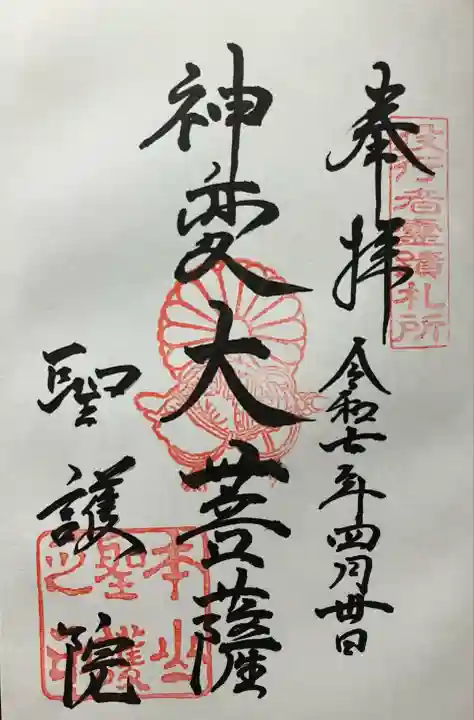 奉拝
役行者霊蹟札所
令和七年四月卅日
神変大菩薩
聖護院